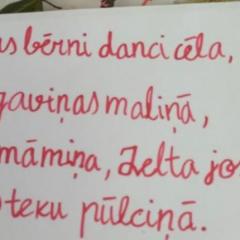 as bērni danci cēla,
gaviņas maliņā,
māmiņa, zelta jo
teku pūlciņā.